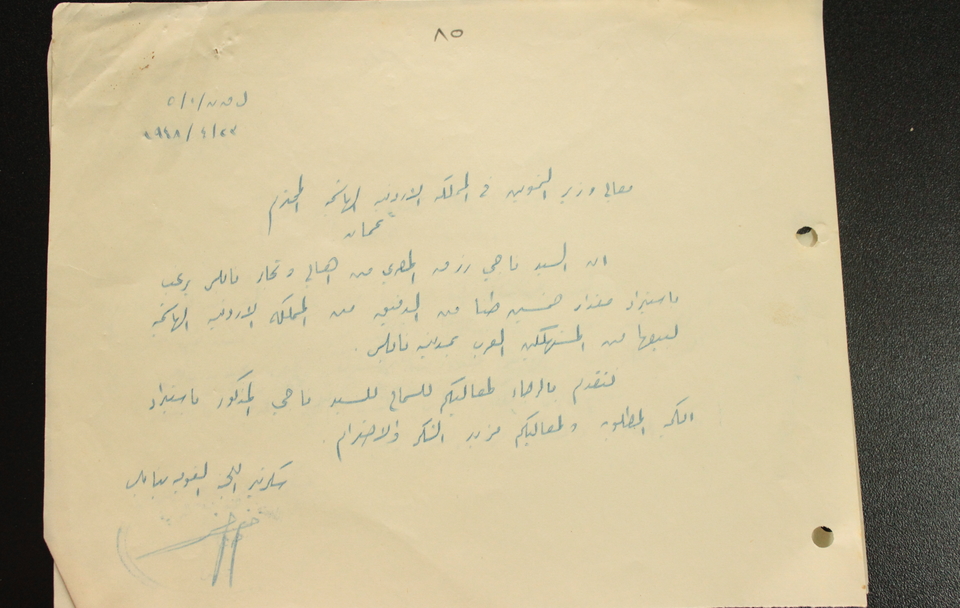 ٨٥
ل ق ن/١/٥
١٩٤٨/٤/٢٣
معالي وزير التموين في المملكة الاردنية الهاشمية المحترم
عمان
ان السيد ناجي رزق المصري من اهالي وتجار نابلس يرغب
باستيراد مقدار خمسين طنا من الدقيق من المملكة الاردنية الهاشمية
لبيعها من المستهلكين العرب بمدينة نابلس.
لنتقدم بالرجاء لمعاليكم للسماح للسيد ناجي المذكور باستيراد
الكمية المطلوبة ولمعاليكم مزيد الشكر والاحترام.
سكرتير اللجنة القومية بنابلس